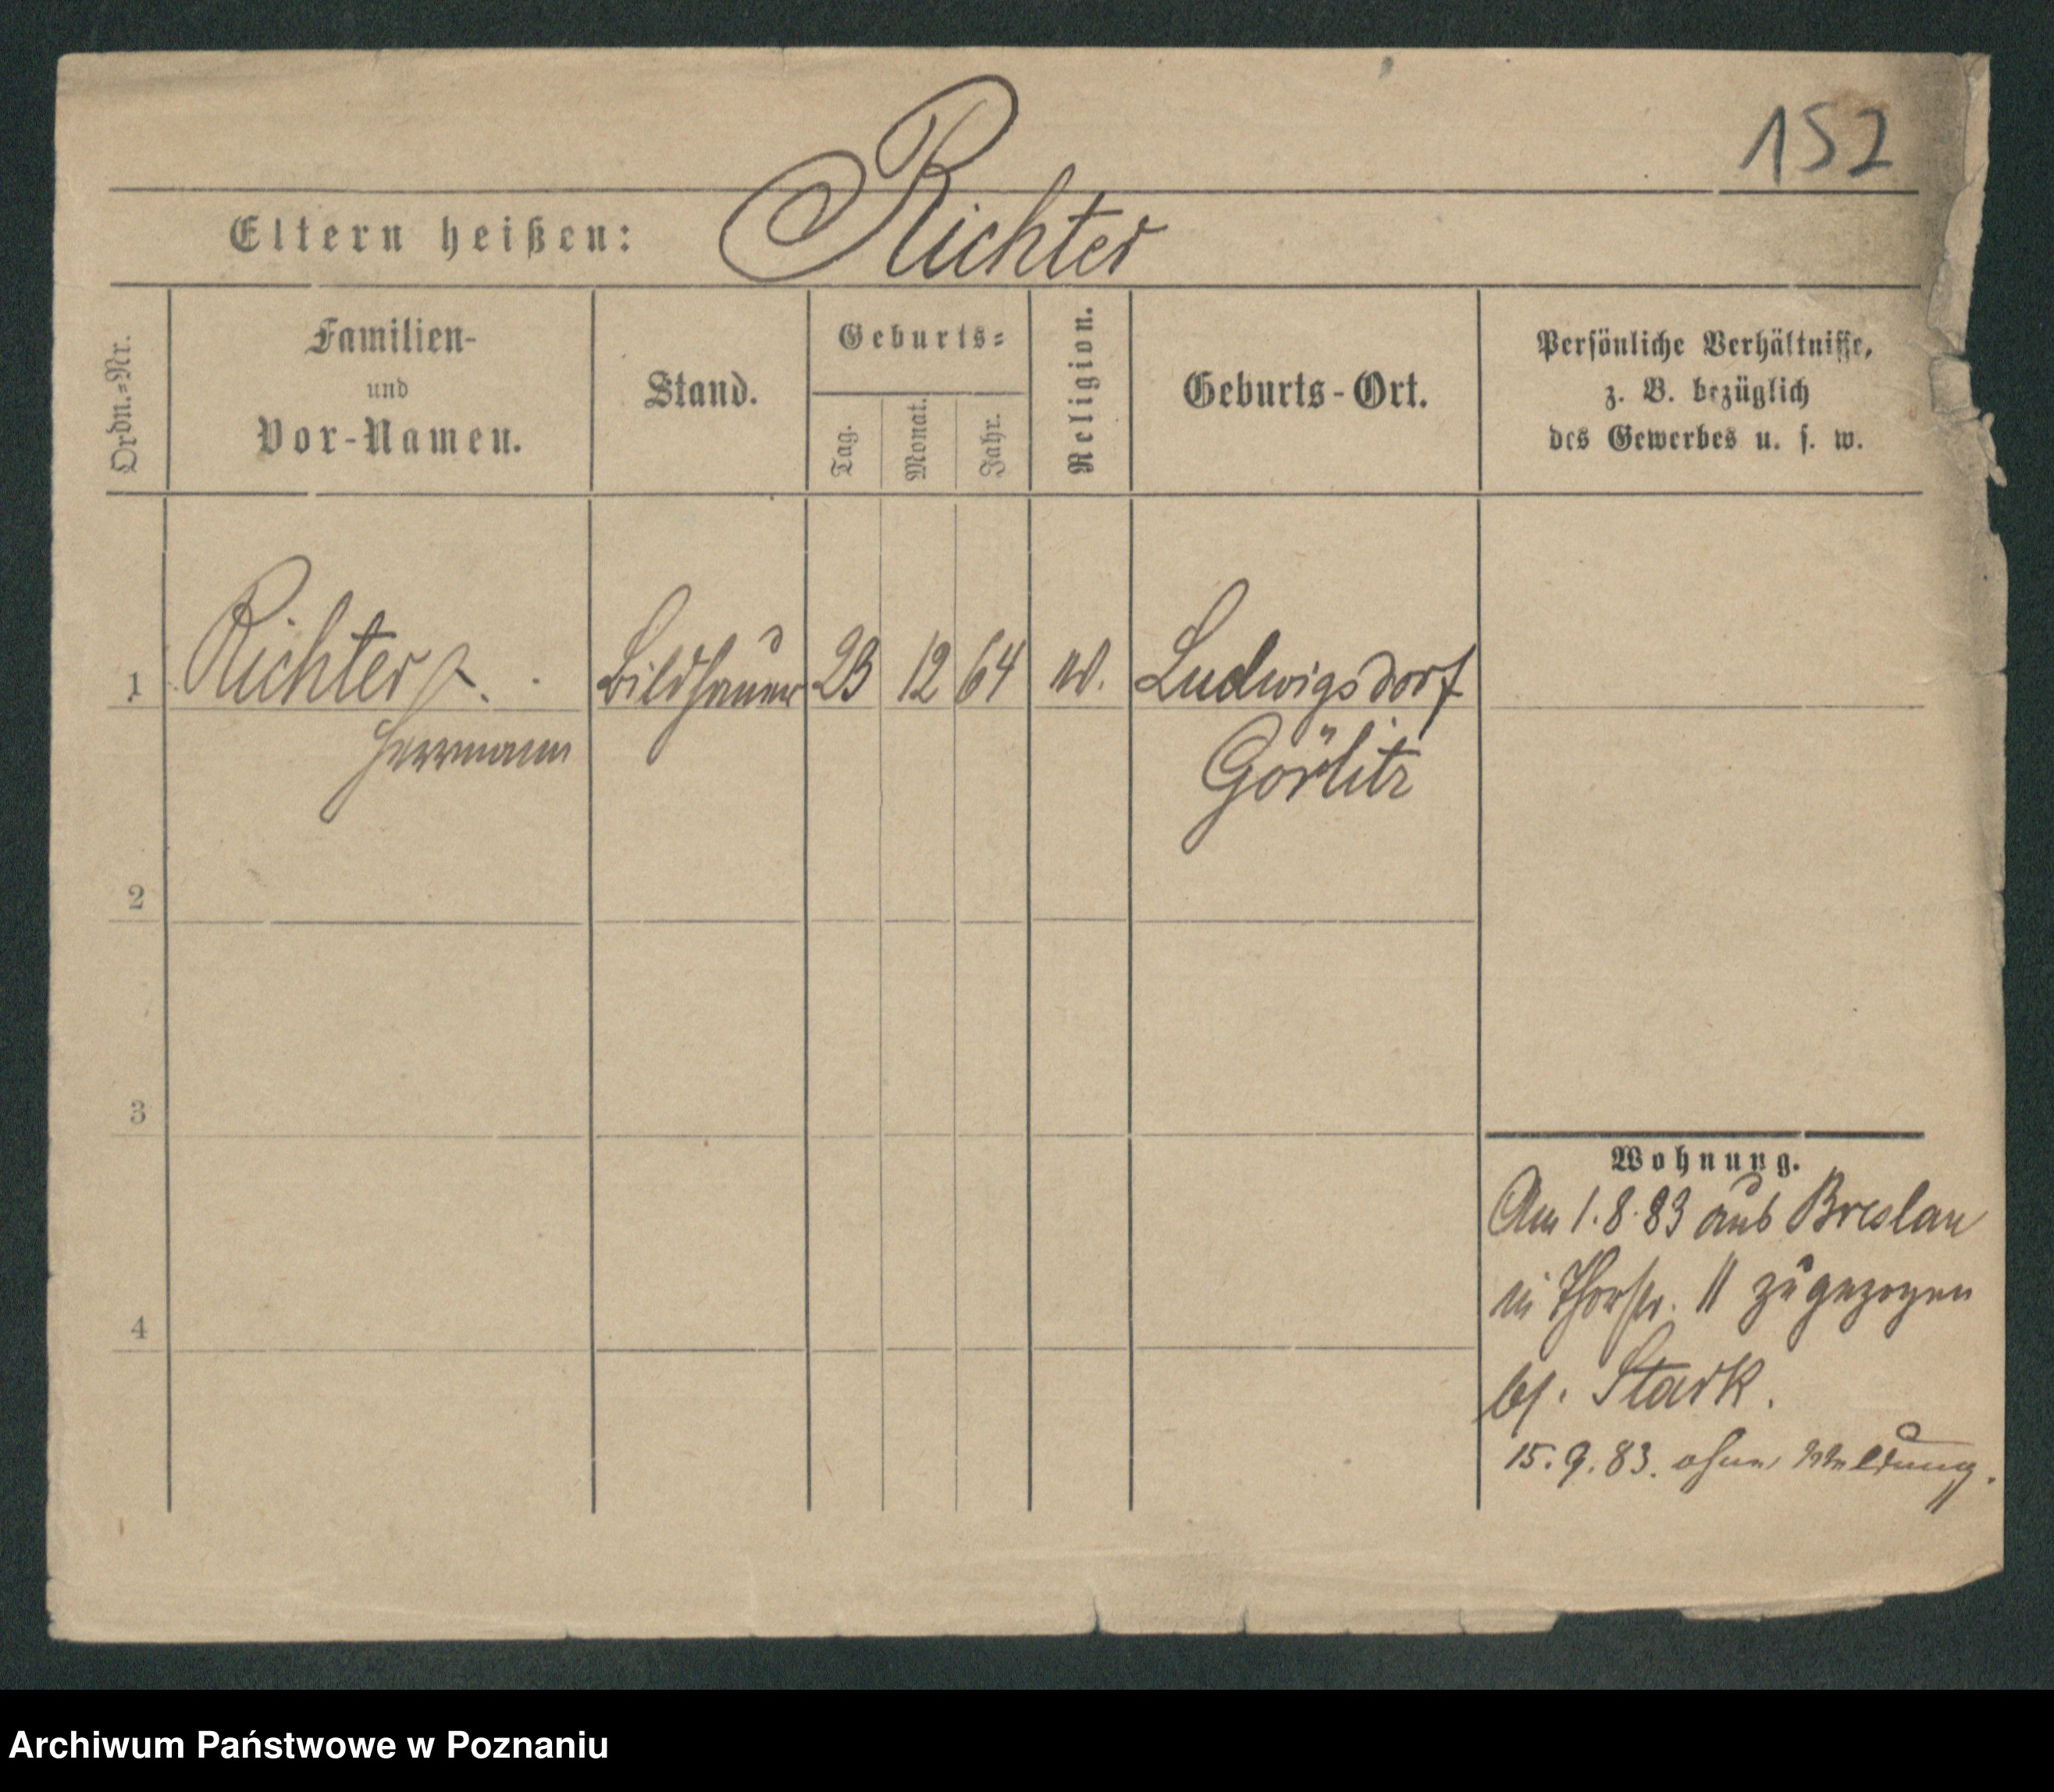 152
Eltern heißen: Richter
Ordn.=Nr.
Familien-
und
Vor-Namen.
Stand.
Geburts=
Tag.
Monat.
Jahr.
Religion.
Geburts-Ort.
Persönliche Verhältnisse,
z. B. bezüglich
des Gewerbes u. s. w.
1 Richter Bildhauer 23 12 64 Ludwigsdorf
Herrmann Görlitz
2
3
4
Wohnung.
Am 1.8.83 aus Breslau
in Thorstr. 11 zugezogen
bei Stark.
15.9.83. ohne Meldung.
Archiwum Państwowe w Poznaniu